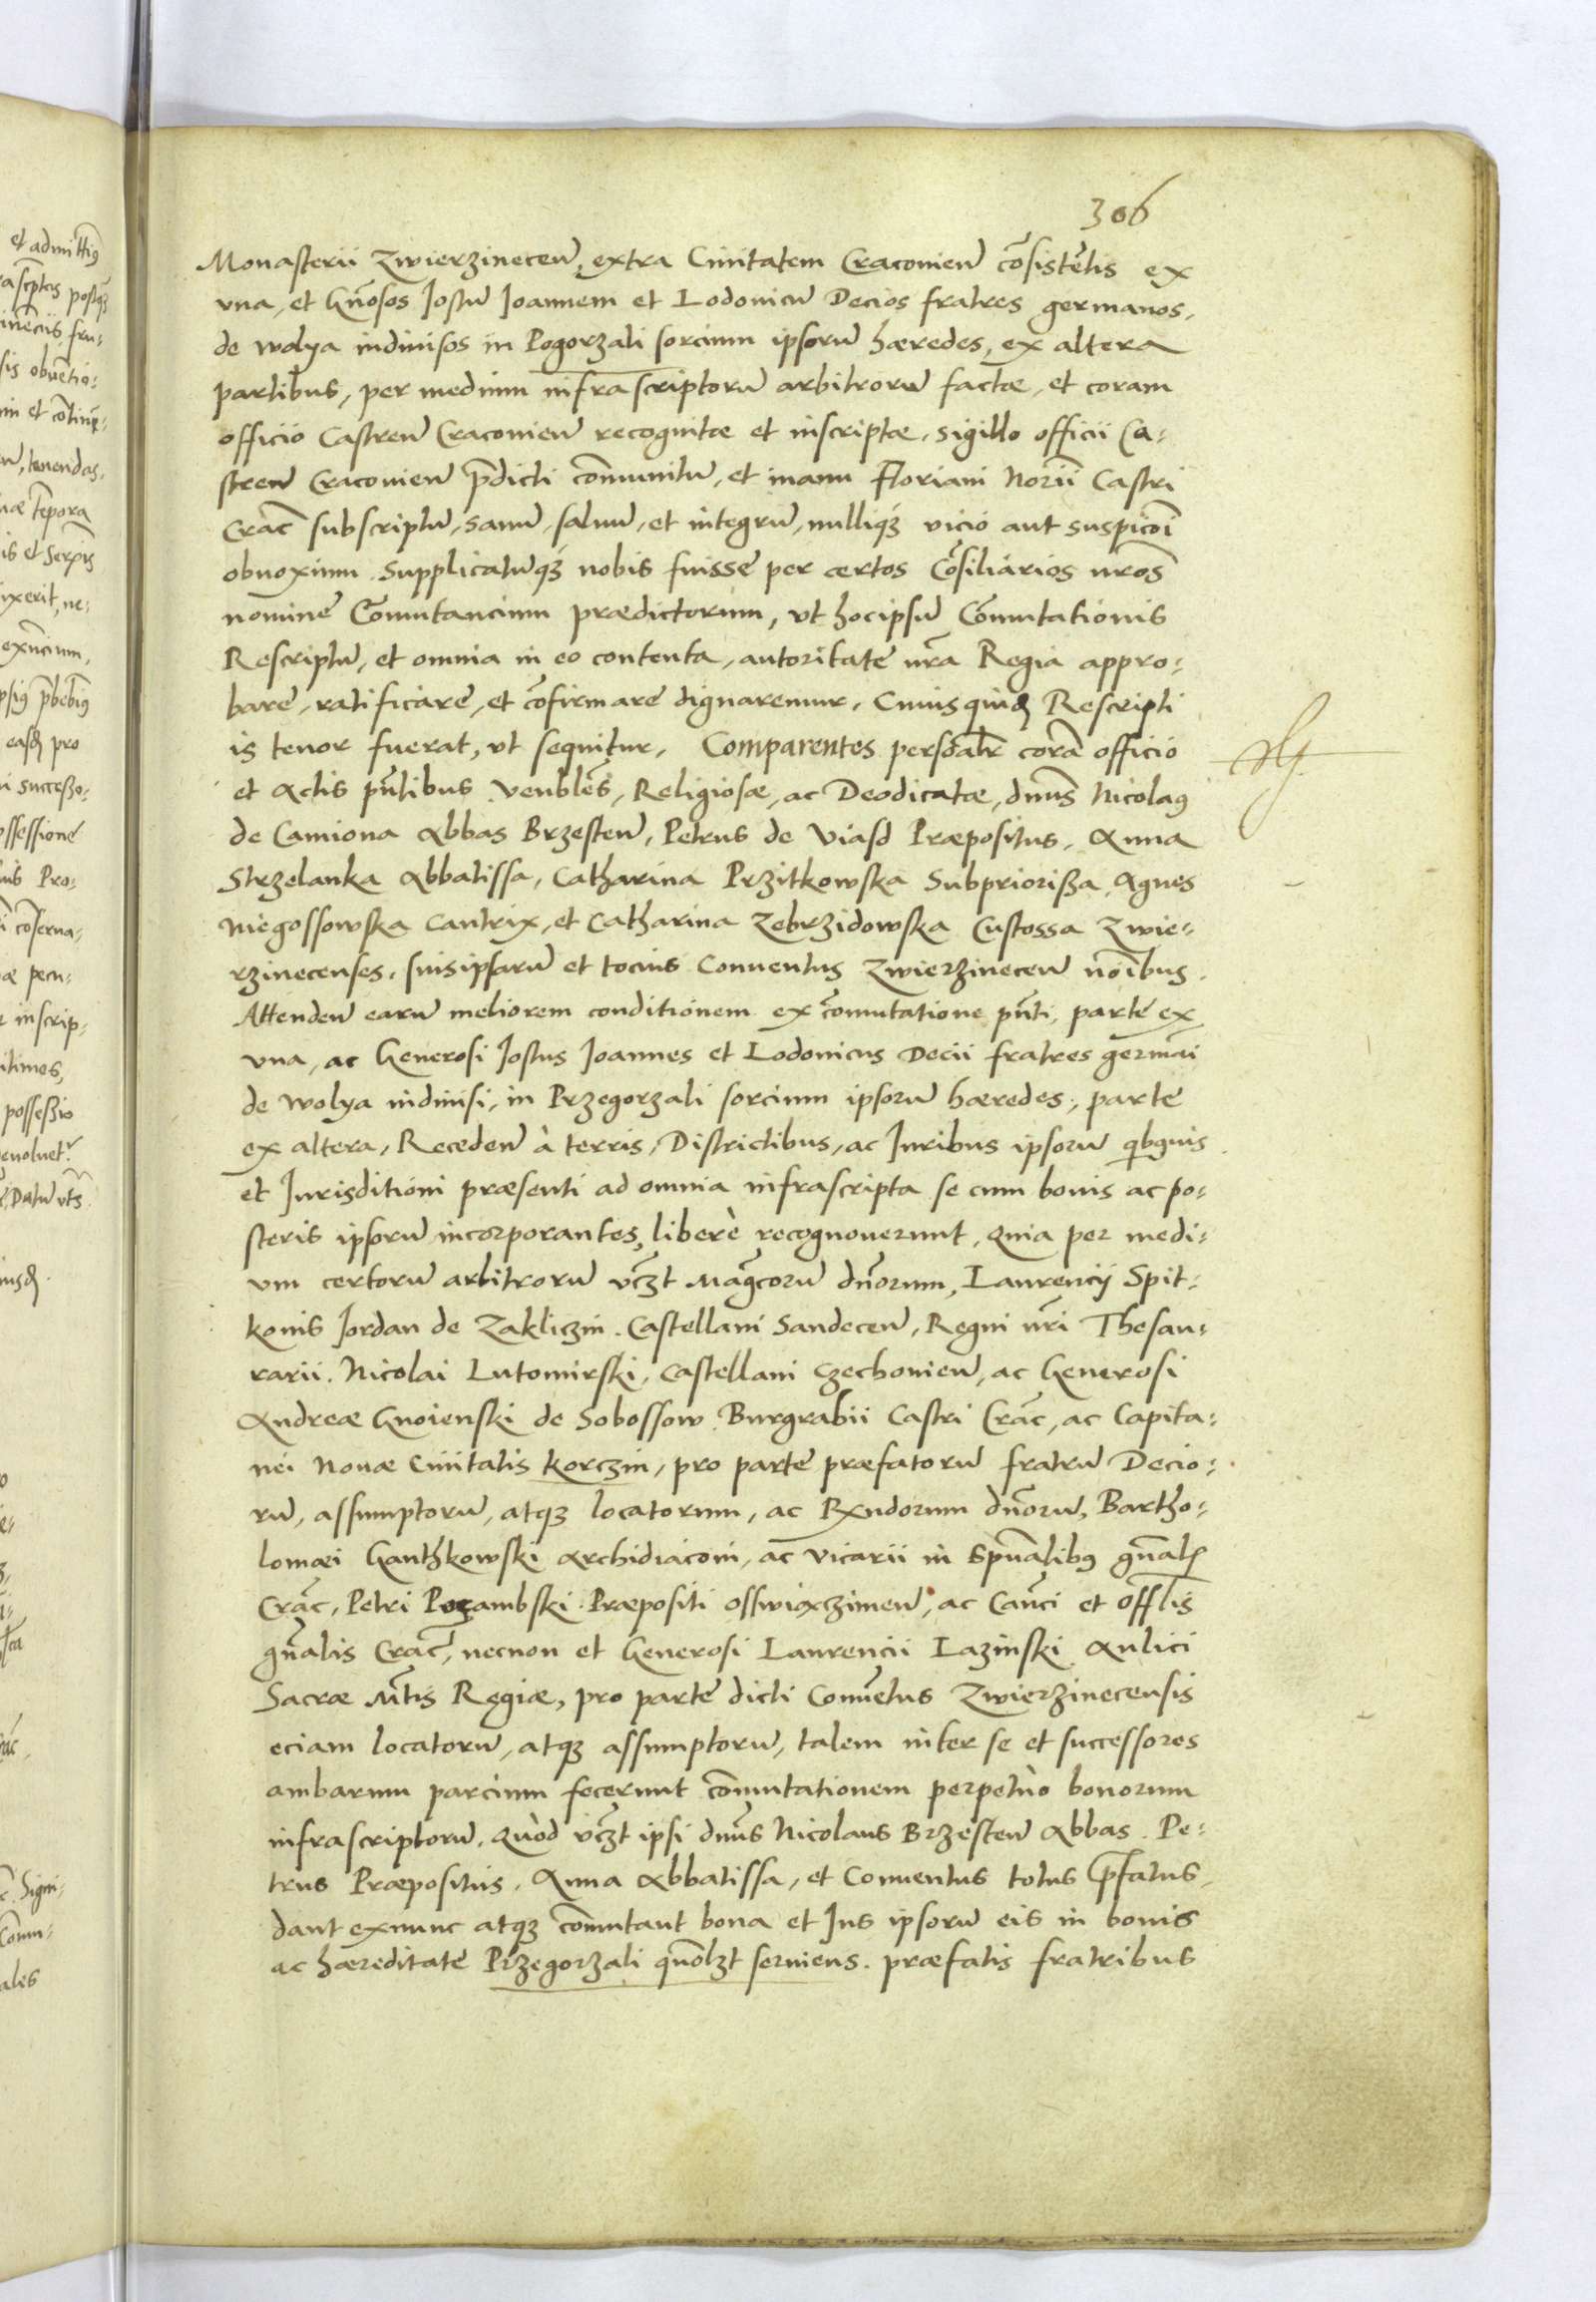 306
Monasterii Zwierzinecen̄, extra Ciuitatem Cracouien̄ cōsistētis ex
vna, et Gn̄osos Jostū Joannem et Lodouicū Decios fratres germanos,
de Wolya indiuisos in Pogorzali sorcium ipsorū hæredes, ex altera
partibus, per medium infrascriptorū arbitrorū factæ, et coram
officio Castren̄ Cracouien̄ recognitæ et inscriptæ, sigillo officii Ca-
stren̄ Cracouien̄ p̄dicti com̄unitū, et manu Floriani Norii Castri
Crac̄ subscriptū, sanū, saluū, et integrū, nulliq₃ vicio aut suspicōi
obnoxium. Supplicatūq₃ nobis fuisse per certos Cōsiliarios nros̄
nomine Com̄utancium prædictorum, vt hocipsū Com̄utationis
Rescriptū, et omnia in eo contenta, autoritate nr̄a Regia appro-
bare, ratificare, et cōfirmare dignaremur. Cuiusquid Rescripti
is tenor fuerat, vt sequitur. Comparentes persōalr̄ corā officio
et Actis pn̄tibus Venbles̄, Religiosæ, ac Deodicatæ, dnus̄ Nicolaꝰ
de Camiona Abbas Brzesten̄, Petrus de Viasd Præpositus, Anna
Strzelanka Abbatissa, Catharina Przitkowska Subpriorißa, Agnes
Niegossowska Cantrix, et Catharina Zebrzidowska Custossa Zwie-
rzinecenses, suisipsarū et tocius Conuentus Zwierzinecen̄ noībus.
Attenden̄ earū meliorem conditionem ex com̄utatione pn̄ti, parte ex
vna, ac Generosi Jostus Joannes et Lodouicus Decii fratres germāi
de Wolya indiuisi, in Przegorzali sorcium ipsorū hæredes, parte
ex altera, Receden̄ à terris, Districtibus, ac Iuribus ipsorū qibꝰuis
et Jurisditioni præsenti ad omnia infrascripta se cum bonis ac po-
steris ipsorū incorporantes, liberè recognouerunt, Quia per medi-
um certorū arbitrorū vcz̄t Maḡcorū dn̄orum, Laurencij Spit-
konis Jordan de Zakliczin, Castellani Sandecen̄, Regni nr̄i Thesau-
rarii, Nicolai Lutomirski, Castellani Czechouien̄, ac Generosi
Andreæ Gnoienski de Sobossow Burgrabii Castri Crac̄, ac Capita-
nei Nouæ Ciuitatis Korczin, pro parte præfatorū fratrū Decio-
rū, assumptorū, atq₃ locatorum, ac Rx̄ndorum dn̄orū, Bartho-
lomæi Ganthkowski Archidiaconi, ac Vicarii in Spūalibꝰ gn̄alis
Crac̄, Petri Pozambski Præpositi Osswiaczimen̄, ac Can̄ci et offlis̄
gn̄alis Crac̄, necnon et Generosi Laurencii Lazinski Aulici
Sacræ Mt̄is Regiæ, pro parte dicti Conuētus Zwierzinecensis
eciam locatorū, atq₃ assumptorū, talem inter se et successores
ambarum parcium fecerunt com̄utationem perpetuò bonorum
infrascriptorū, Quòd vcz̄t ipsi dnūs Nicolaus Brzesten̄ Abbas, Pe-
trus Præpositus, Anna Abbatissa, et Conuentus totus p̄fatus,
dant exnunc atq₃ com̄utant bona et Jus ipsorū eis in bonis
ac hæreditate Przegorzali quōlzt seruiens, præfatis fratribus